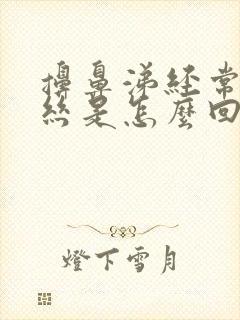 擤鼻涕経常
絲是怎麼回
燈下雪月